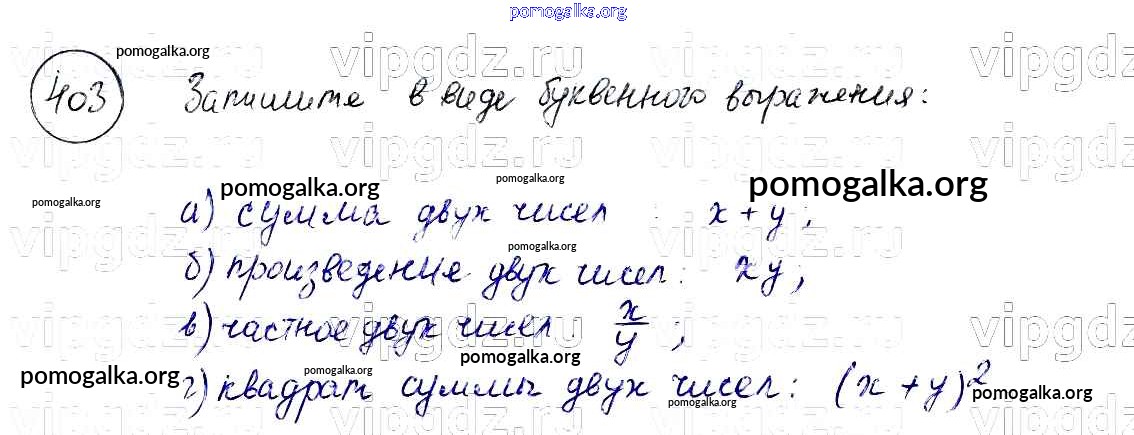 pomogalka.org
vipgdz.ru vipgdz.ru vipgdz.ru vipgdz
pomogalka.org
403 Запишите в виде буквенного выражения:
vipgdz.ru vipgdz.ru vipgdz.ru vipgdz
pomogalka.org pomogalka.org pomogalka.org pomogalka.org
а) сумма двух чисел : x + y;
vipgdz.ru vipgdz.ru vipgdz.ru vipgdz
pomogalka.org
б) произведение двух чисел: xy;
в) частное двух чисел x/y ;
vipgdz.ru vipgdz.ru vipgdz.ru vipgdz
pomogalka.org pomogalka.org pomogalka.org
г) квадрат суммы двух чисел: (x + y)²
pomogalka.org pomogalka.org
vipgdz.ru vipgdz.ru vipgdz.ru vipgdz